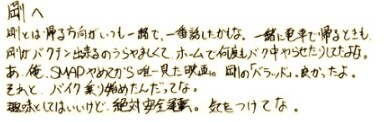 剛へ
剛とは帰る方向がいつも一緒で、一番話したかもな。一緒に電車で帰るときも
剛がバクテン出来るのうらやましくて、ホームで何度もバク中やらせたりしてたよな。
あ、俺、SMAPやめてから唯一見た映画。剛の「バラッド」。良かったよ。
それと、バイク乗り始めたんだってな。
趣味としてはいいけど、絶対安全運転。気をつけてな。